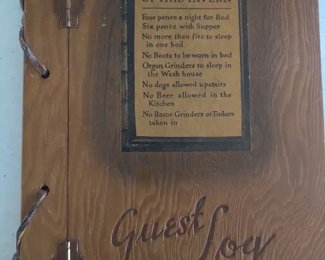 OF THIS TAVERN
Four pence a night for Bed
Six pence with Supper
No more than five to sleep
in one bed
No Boots to be worn in bed
Organ Grinders to sleep in
the Wash house
No dogs allowed upstairs
No Beer allowed in the
Kitchen
No Razor Grinders or Tinkers
taken in
Guest Log